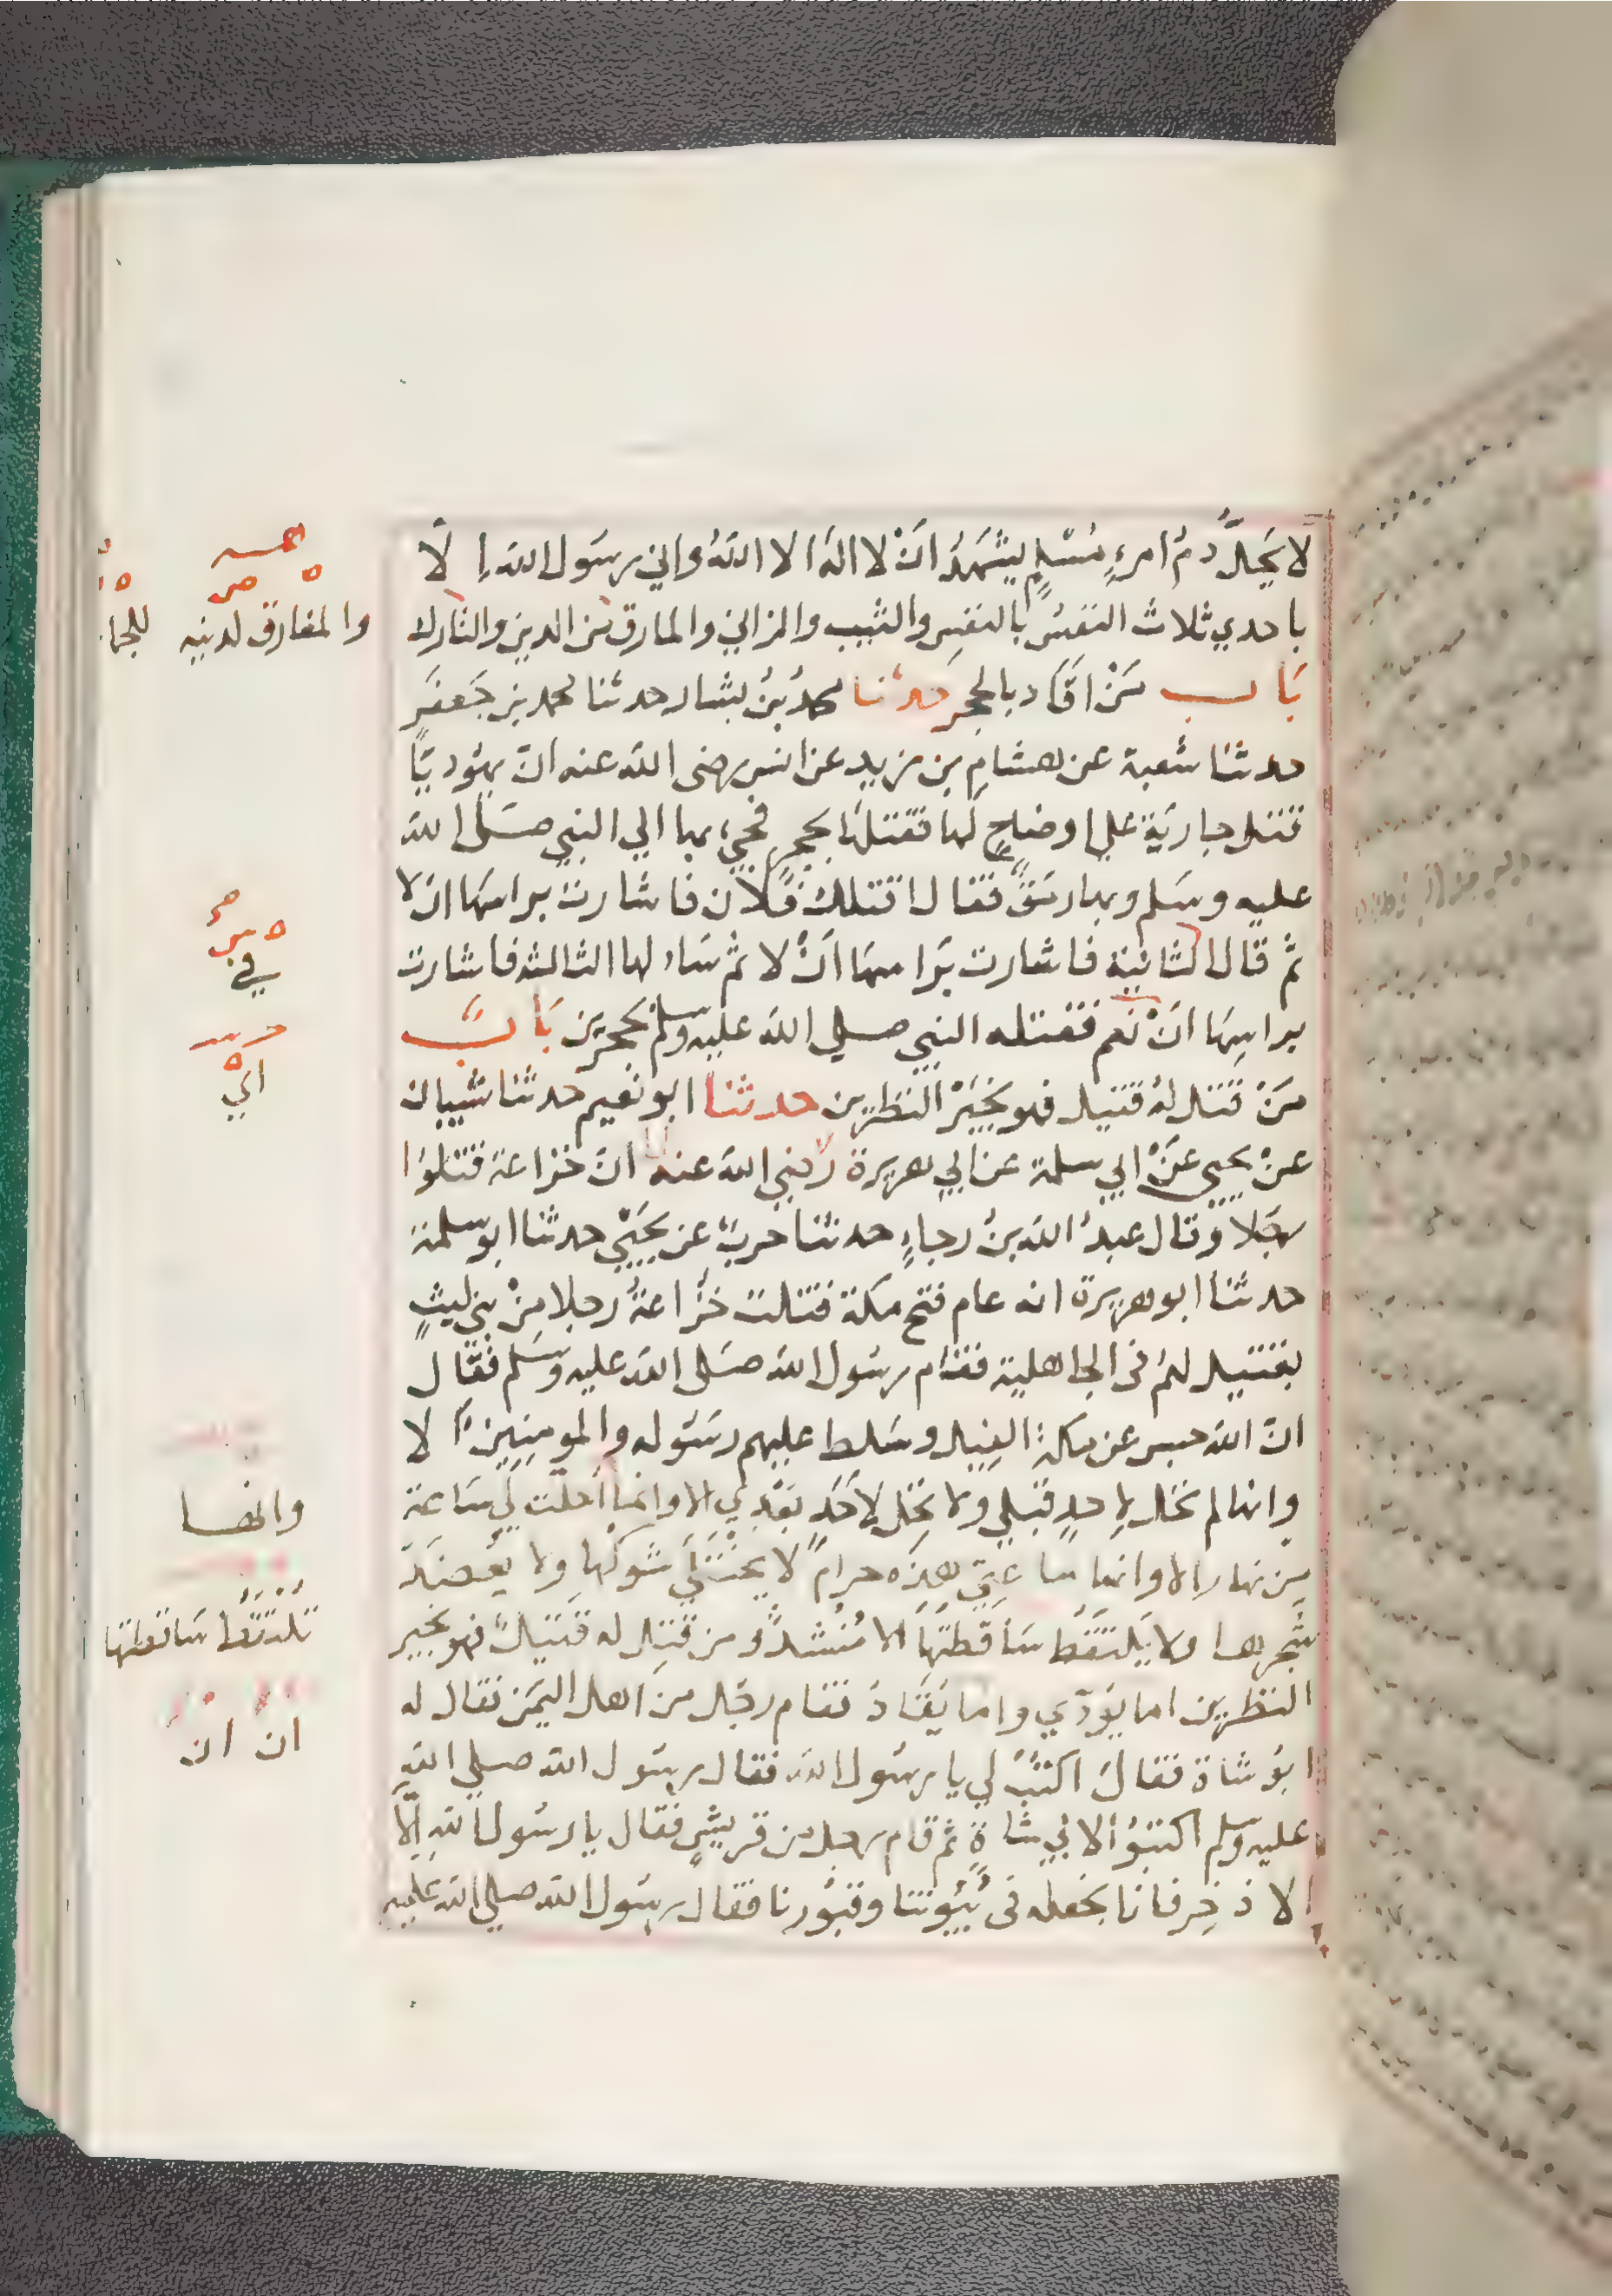 لا يَحِلُّ دمُ امرءٍ مُسْلمٍ يشْهَدُ انْ لا اله الا اللهُ واني رسَول الله اِلَّا
باحدي ثلاث النفسُ بالنفسِ والثيب والزاني والمارق من الدين والتارك
بَاب مَنْ اقَاد بالحجرِ حَدثنا محمدُ بنُ بشار حدثنا محمد بن جَعفرٍ
حدثنا شعبة عن هشامِ بن زيد عن انس رضى الله عنه انّ يهُوديّا
قتل جاريَة علي اوضاحٍ لها فقتلهَا بحجرٍ فجيءَ بها الي النبي صَلى الله
عليه وسَلم وبها رمَقٌ فقال اقتلك فلان فاشارت براسهَا انْ لا
ثمَّ قال الثانية فاشارت بَراسهَا انْ لا ثمَّ سَالها الثالثة فاشارت
براسِهَا انْ نَعم فقتله النبي صلي الله عليه وسلم بحجرين بَابٌ
مَنْ قتل لهُ قتيل فهو بخَيْرِ النظَرين حدثنا ابو نعيم حدثنا شيبان
عنْ يحيى عَنْ ابي سلمة عن ابي هريرة رضي الله عنه انّ خزاعة قتلوُا
رجَلا وَقال عبدُ الله بنُ رجاءٍ حدثنا حربٌ عن يحَيْي حدثنا ابو سلمة
حدثنا ابو هريرة انه عام فتح مكة قتلت خُزاعةُ رجلا مِنْ بني ليثٍ
بقتيل لهُم فى الجاهلية فقام رسَول الله صَلى الله عليه وسَلم فقال
انّ الله حبس عن مكةَ الفِيل وسَلط عليهم رسَوله والمومنِين الا
وانها لم تحَل لاحدٍ قبْلي ولا تحَل لاحَدٍ بَعْدِي الا وانما اُحلت لي سَاعة
مِن نهار الا وانها ساعتِي هذِه حرامٌ لا يختَلَي شوكُها ولا يُعضَد
شَجرها ولا يَلتَقط سَاقطتَهَا الا مُنْشدٌ ومن قتِل له قتيلٌ فهو بخير
النظرين اما يوُدَي واما يُقَادُ فقام رجَل من اهل اليمَن يقال له
ابوُ شاة فقالَ اكتُبْ لي يا رسُول الله فقال رسَول الله صلي الله
عليه وسلم اكتبوُا لابي شاةٍ ثم قام رجل من قريشٍ فقال يا رسُول الله اِلّا
الاذخِر فانا نجْعله فى بُيُوتنا وقبُورنا فقال رسَول الله صلى الله عليه
والمفارق لدينه للجما
في
اي
وانها
تلتقط ساقطتها
ان ان